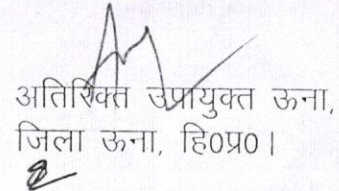 अतिरिक्त उपायुक्त ऊना,
जिला ऊना, हि0प्र0।